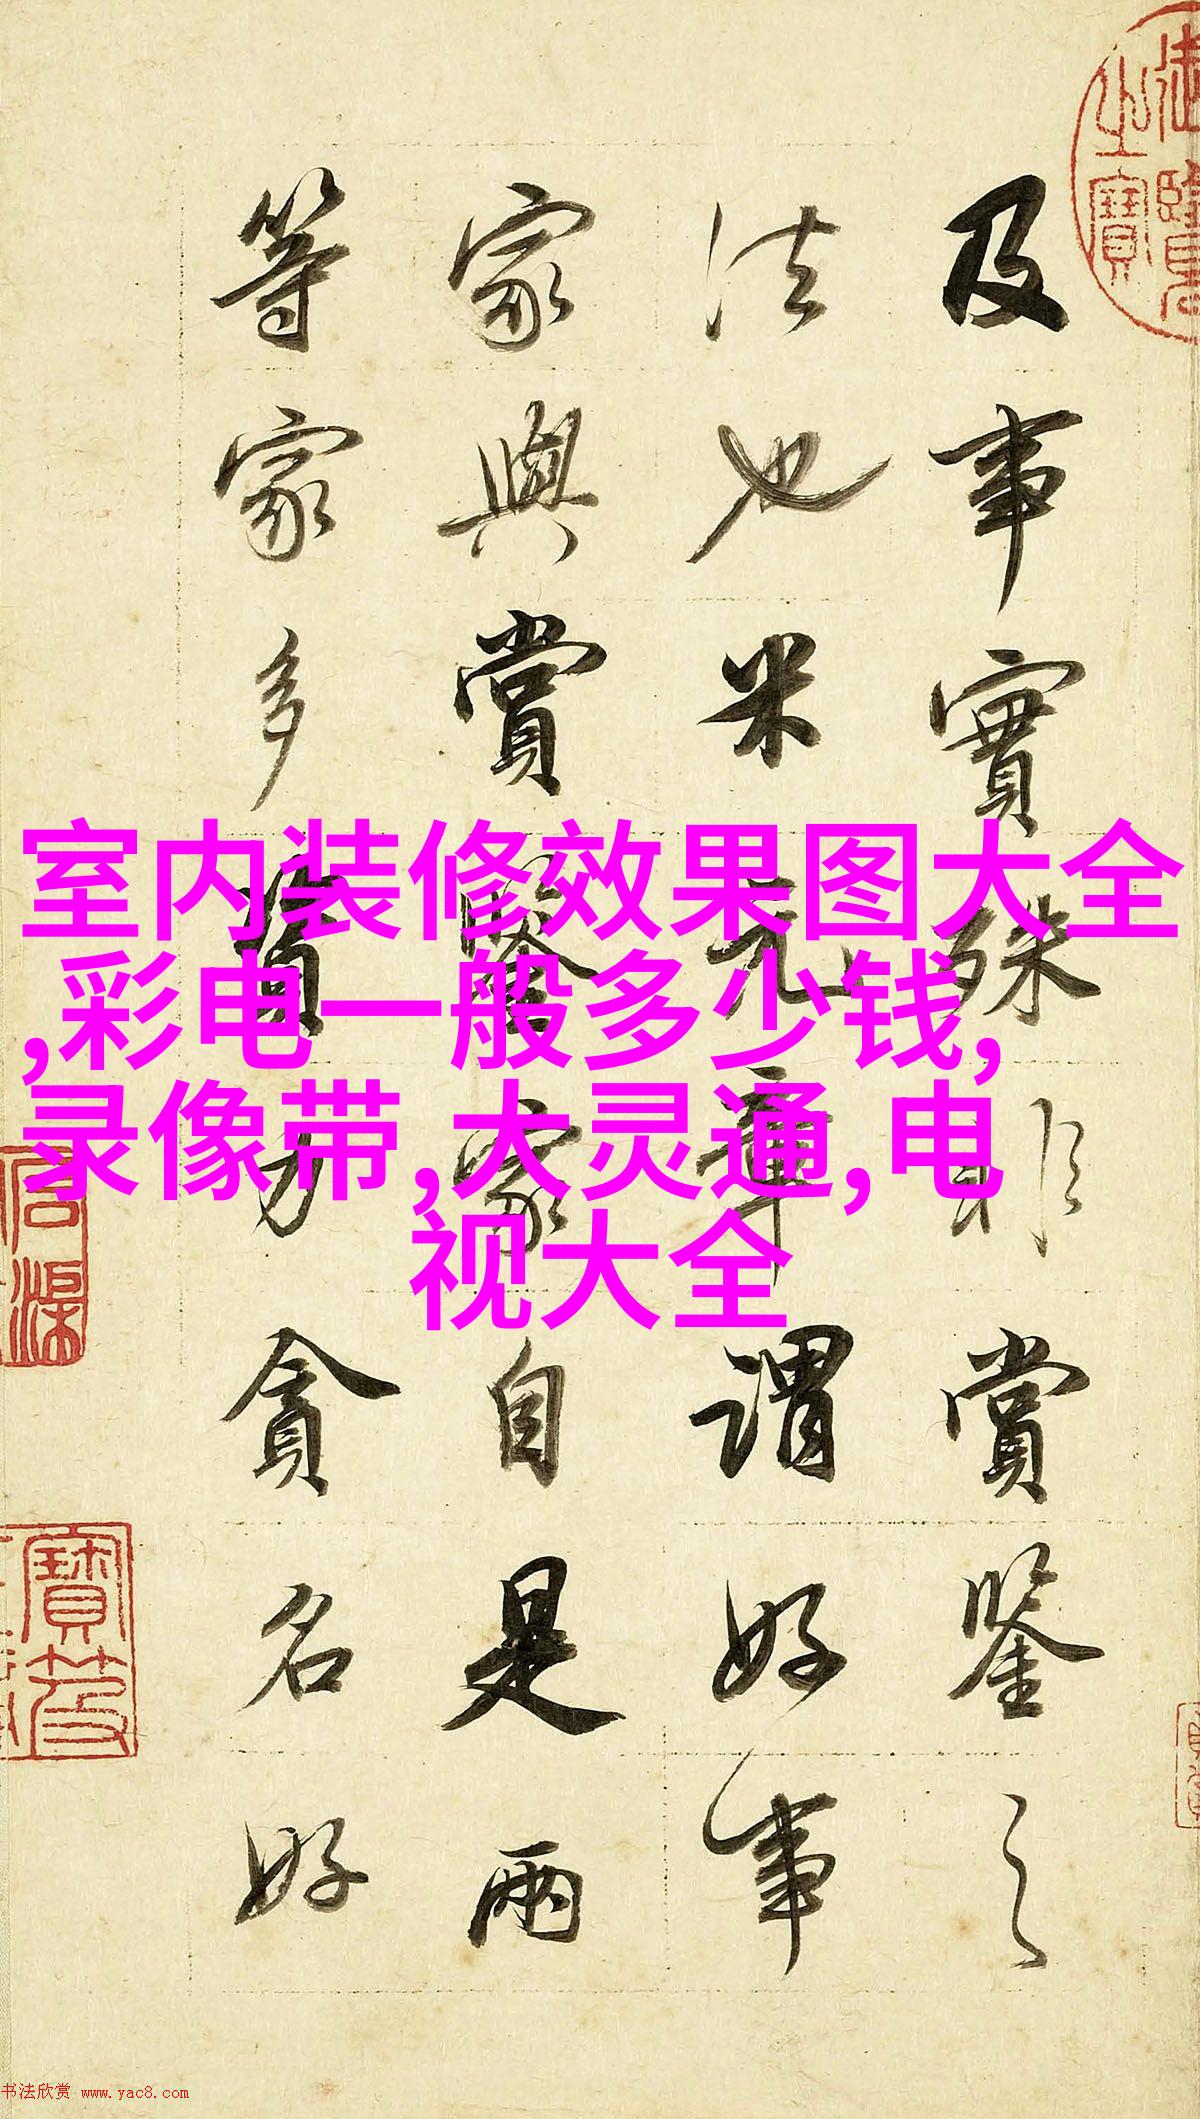 及事實殊非賞鑒之
法也米元章謂好事
家與賞鑒家自是兩
等家多資力貪名好
室内装修效果图大全
,彩电一般多少钱,
录像带,大灵通,电
视大全
之寶
寶笈
书法欣赏 www.yac8.com